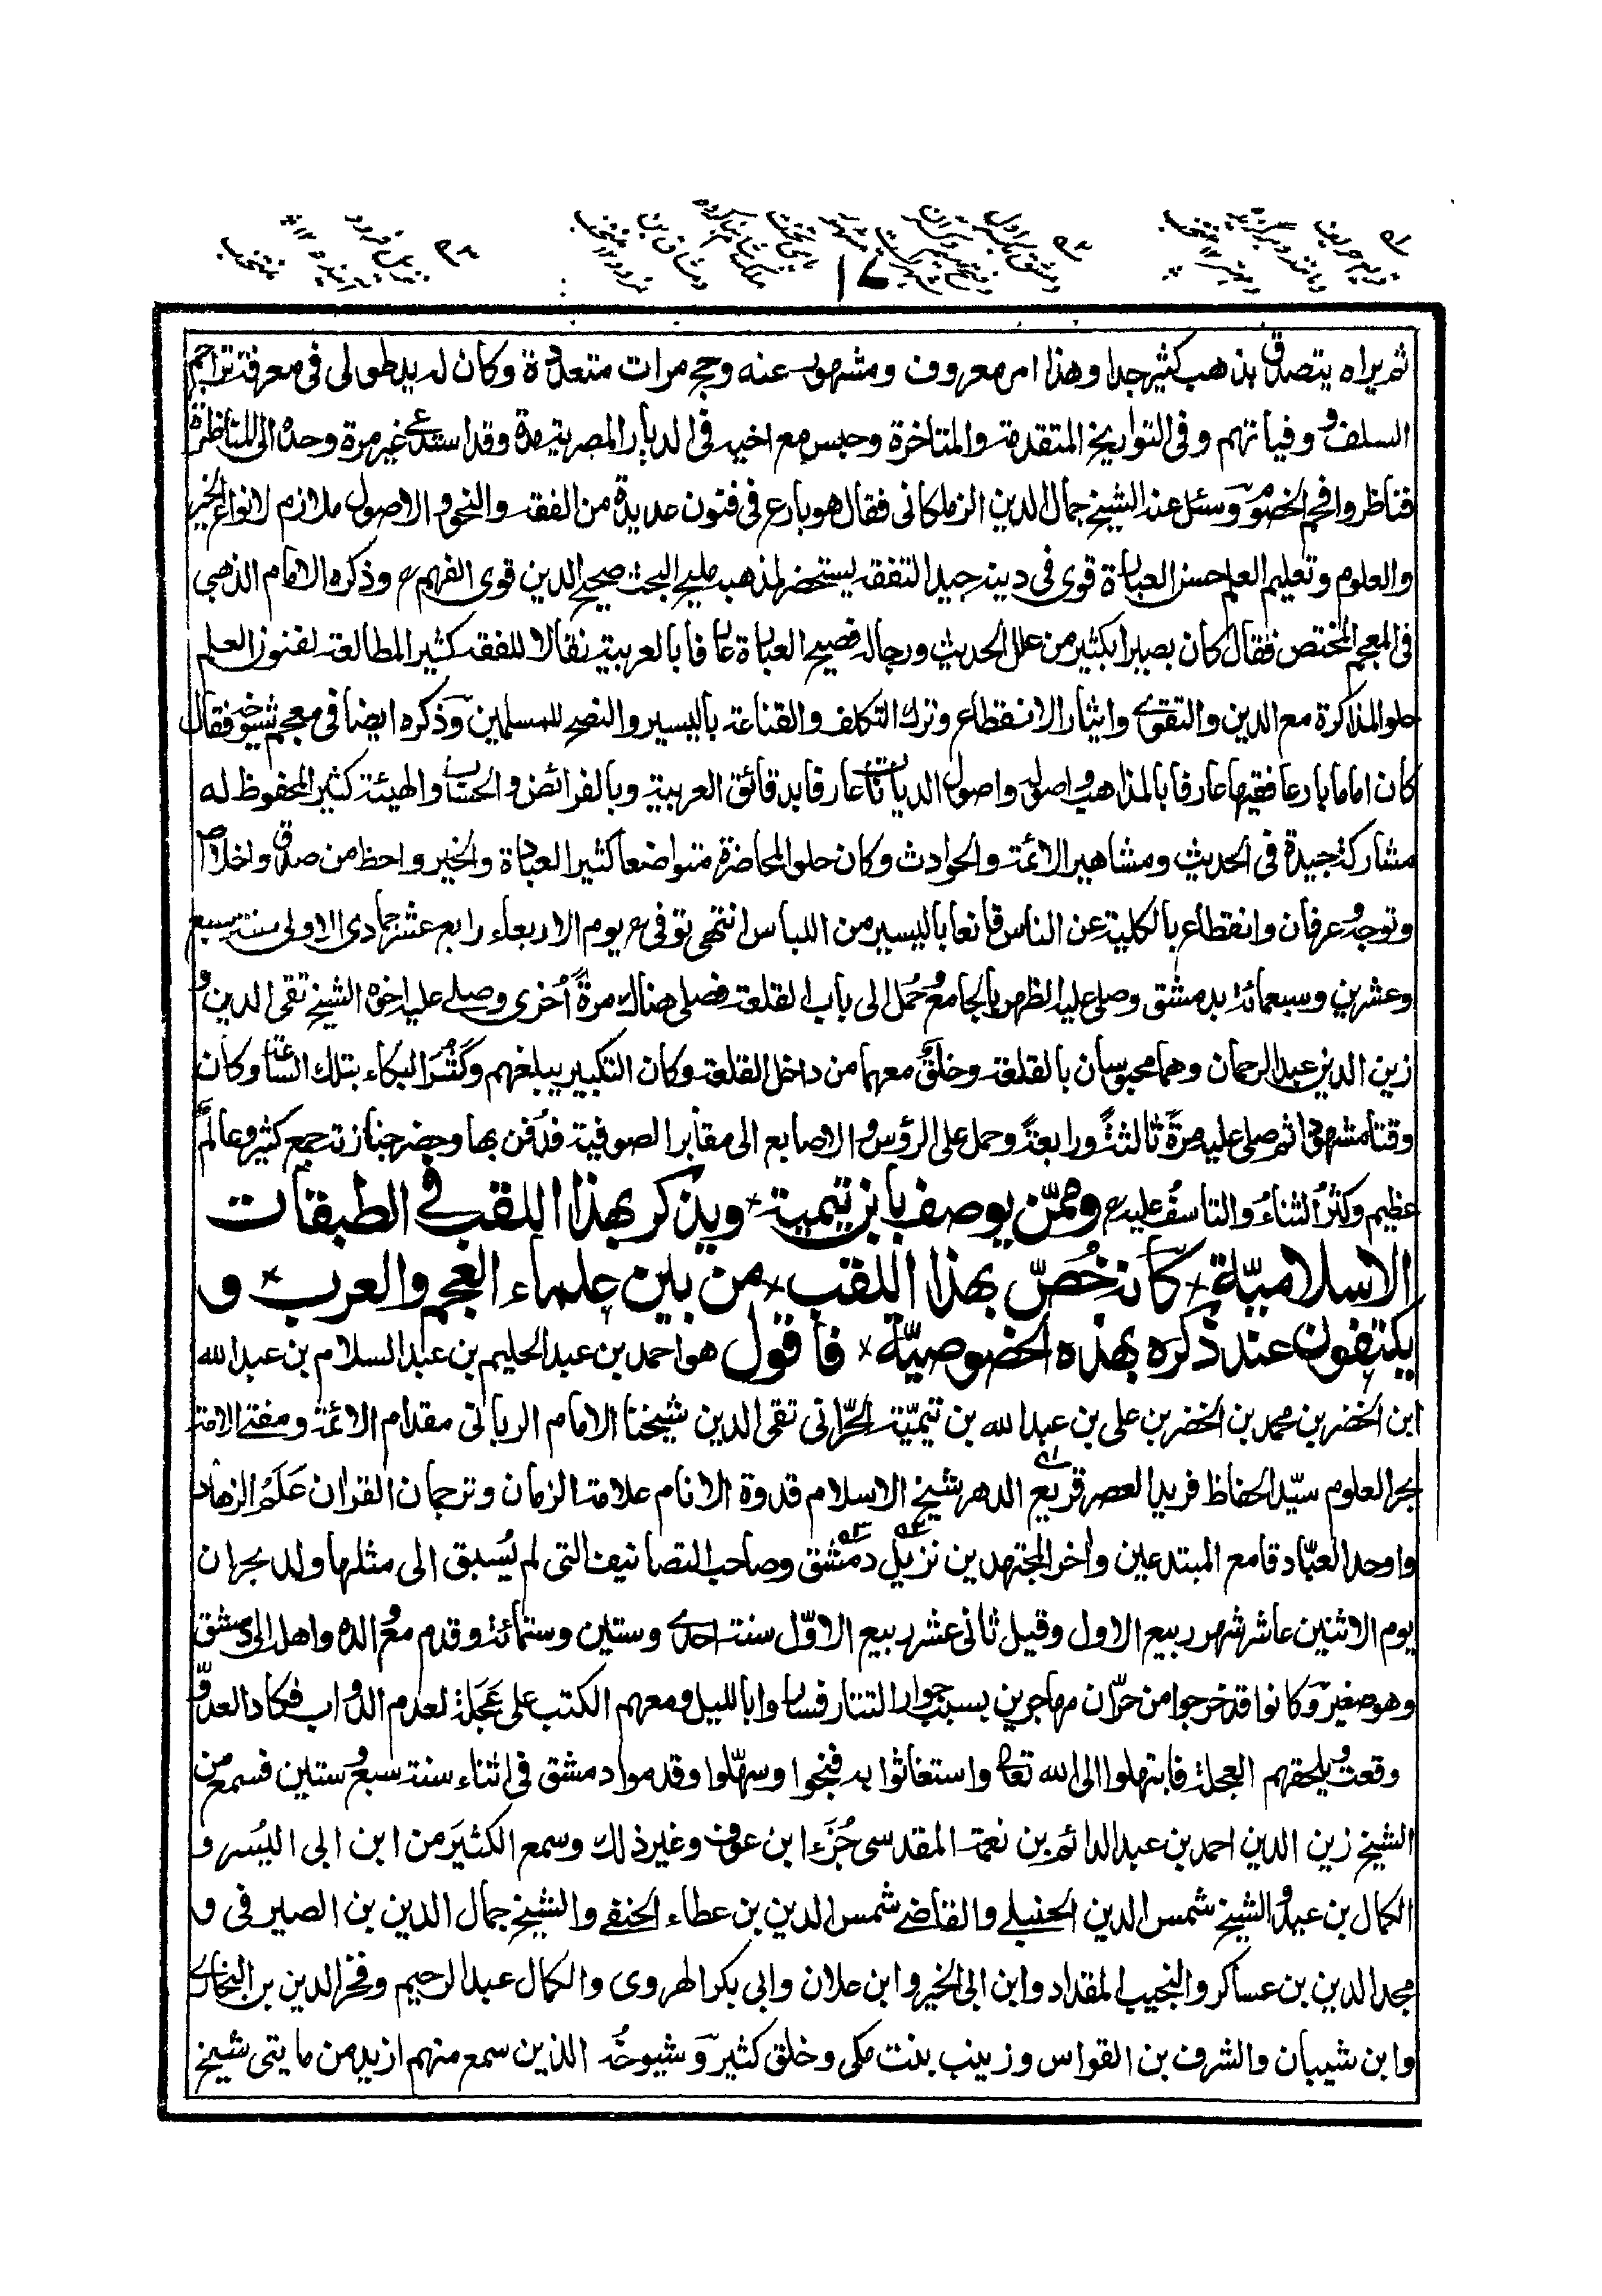 ١٧
ثم يراه يتصدق بذهب كثير جدا وهذا امر معروف ومشهور عنه وحج مرات متعددة وكان له يد طولى فى معرفة تراجم
السلف ووفياتهم وفى التواريخ المتقدمة والمتاخرة وحبس مع اخيه فى الديار المصرية مدة وقد استدعے غير مرة وحده الى المناظرة
فناظر وافحم الخصوم وسئل عنه الشيخ جمال الدين الزملكانى فقال هو بارع فى فنون عديدة من الفقه والنحو والاصول ملازم لانواع الخير
والعلوم وتعليم العلم حسن العبادة قوى فى دينه جيد التفقه يستحضر لمذهبه مليح البحث صحيح الدين قوى الفهم ح وذكره الامام الذهبى
فى المعجم المختص فقال كان بصيرا بكثير من علل الحديث ورجاله فصيح العبارة عارفا بالعربية نقالا للفقه كثير المطالعة لفنون العلم
حلو المذاكرة مع الدين والتقوى وايثار الانقطاع وترك التكلف والقناعة باليسير والنصح للمسلمين وذكره ايضا فى معجم شيوخه فقال
كان اماما بارعا فقيها عارفا بالمذاهب واصوله واصول الديانات عارفا بدقائق العربية وبالفرائض والحساب والهيئة كثير المحفوظ له
مشاركة جيدة فى الحديث ومشاهير الائمة والحوادث وكان حلو المحاضرة متواضعا كثير العبادة والخير واحظ من صدق واخلاص
وتوجه وعرفان وانقطاع بالكلية عن الناس قانعا باليسير من اللباس انتهى توفى ح يوم الاربعاء رابع عشر جمادى الاولى سنة سبع
وعشرين وسبعمائة بدمشق وصلى عليه الظهر بالجامع وحُمل الى باب القلعة فصلى هناك مرةً اُخرى وصلے عليه اخوه الشيخ تقى الدين و
زين الدين عبد الرحمان وهما محبوسان بالقلعة وخلق معهما من داخل القلعة وكان التكبير يبلغهم وكَثُرَ البكاء بتلك الساعة وكان
وقتا مشهودا ثم صلى عليه مرةً ثالثةً ورابعةً وحمل على الرؤس والاصابع الى مقابر الصوفية فدُفن بها وحضر جنازته جمع كثير وعالم
عظيم وكثُر الثناءُ والتاسفُ عليه ح وممّن يوصف بابن تيمية × ويذكر بهذا اللقب فى الطبقات
الاسلاميّة × كأنه خُصّ بهذا اللقب × من بين علماء العجم والعرب × و
يكتفون عند ذكره بهذه الخصوصيّة × فاقول هو احمد بن عبد الحليم بن عبد السلام بن عبد الله
ابن الخضر بن محمد بن الخضر بن على بن عبد الله بن تيميّة الحرّانى تقى الدين شيخنا الامام الربانى مقدام الائمة ومفتى الامة
بحر العلوم سيّد الحفاظ فريد العصر قريع الدهر شيخ الاسلام قدوة الانام علامة الزمان وترجمان القران علَم الزهاد
واوحد العبّاد قامع المبتدعين واٰخر المجتهدين نزيل دمشق وصاحب التصانيف التى لم يُسبق الى مثلها ولد بحران
يوم الاثنين عاشر شهر ربيع الاول وقيل ثانى عشر ربيع الاوّل سنة احدى وستين وستمائة وقدم مع والده واهله الى دمشق
وهو صغير وكانوا قد خرجوا من حرّان مهاجرين بسبب جوار التتار فساروا بالليل ومعهم الكتب على عَجَلة لعدم الدواب فكاد العدوّ
وقعت يلحقهم العجلة فابتهلوا الى الله تعالى واستغاثوا به فنجوا وسهّلوا وقدموا دمشق فى اثناء سنة سبع وستين فسمع من
الشيخ زين الدين احمد بن عبد الدائم بن نعمة المقدسى جُزءَ ابن عوف وغير ذلك وسمع الكثيَر من ابن ابى اليُسر و
الكمال بن عبد والشيخ شمس الدين الحنبلے والقاضے شمس الدين بن عطاء الحنفے والشيخ جمال الدين بن الصيرفى و
مجد الدين بن عساكر والنجيب المقداد وابن ابى الخير وابن علان وابى بكر الهروى والكمال عبد الرحيم وفخر الدين بن البخارى
وابن شيبان والشرف بن القواس وزينب بنت مكى وخلق كثير وشيوخُه الذين سمع منهم ازيد من مايتى شيخ